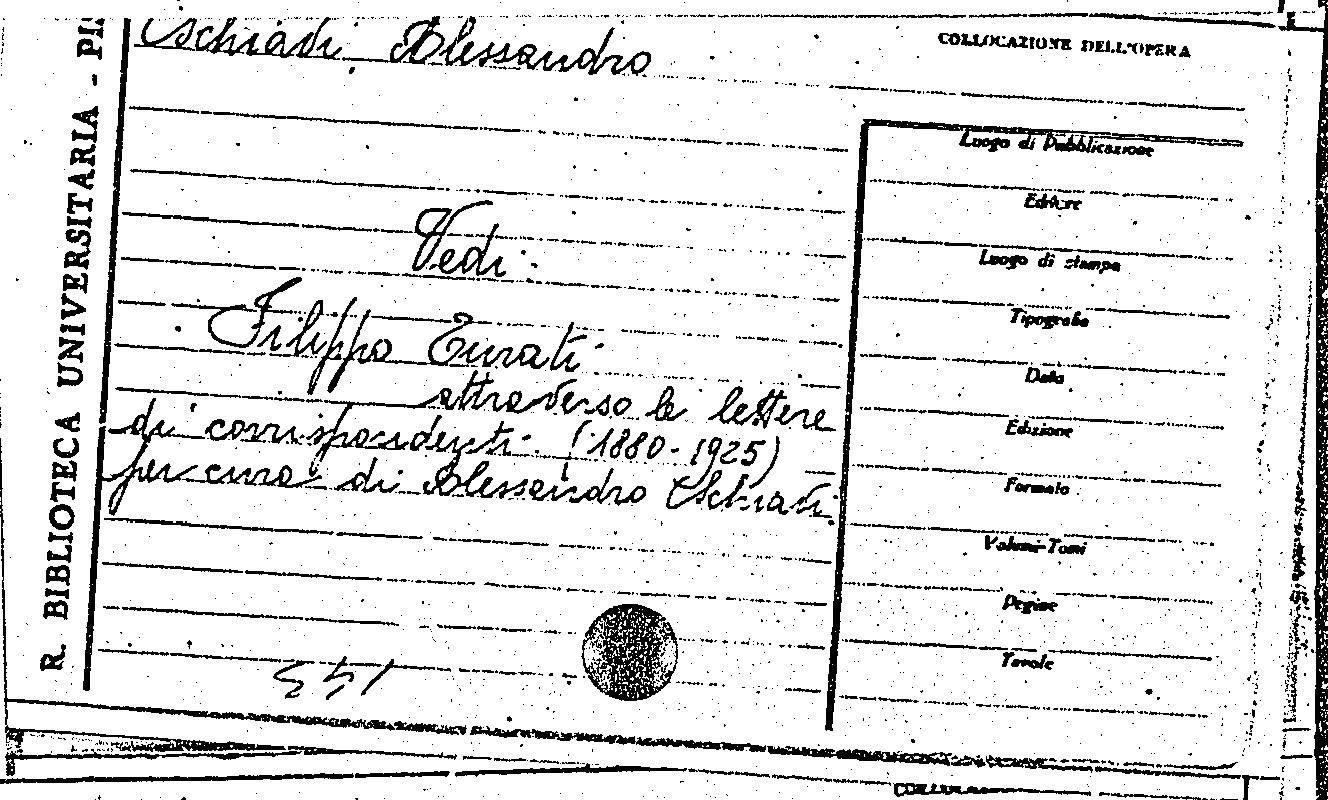 Schiavi, Alessandro
COLLOCAZIONE DELL'OPERA
R. BIBLIOTECA UNIVERSITARIA - PI
Vedi:
Filippo Turati
attraverso le lettere
di corrispondenti. (1880-1925)
per cura di Alessandro Schiavi.
Luogo di Pubblicazione
Editore
Luogo di stampa
Tipografia
Data
Edizione
Formato
Volumi-Tomi
Pagine
Tavole